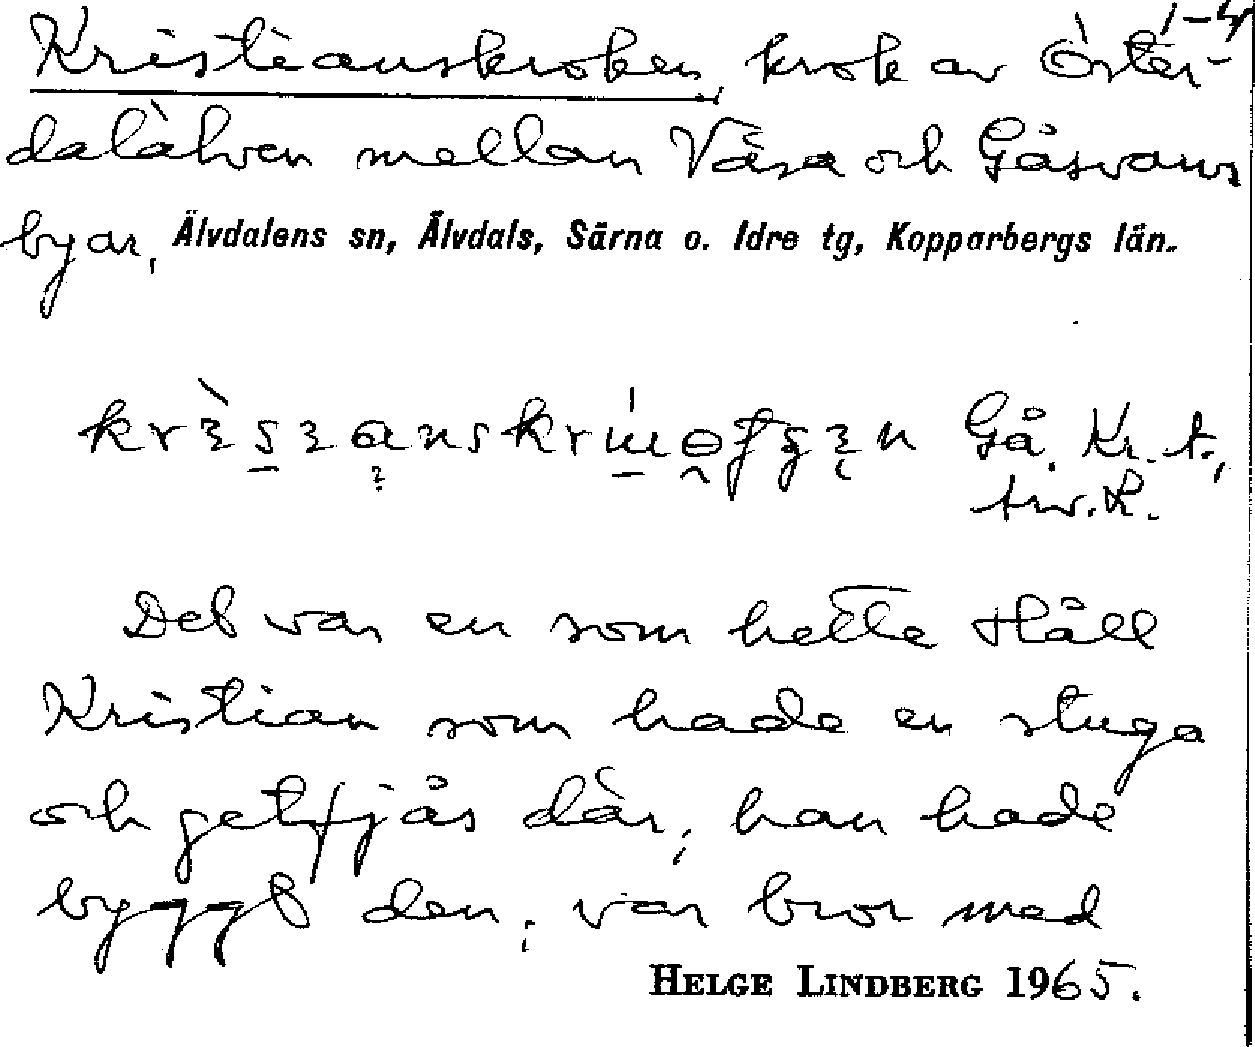 1-4
Kristianskroken, krok av Öster-
dalälven mellan Våsa och Gåsvarvs
byar, Älvdalens sn, Älvdals, Särna o. Idre tg, Kopparbergs län.
Gå. Kr. t.,
tw. R.
Det var en som hette Håll
Kristian som hade en stuga
och getfjås där, han hade
byggt den, var bror med
HELGE LINDBERG 1965.